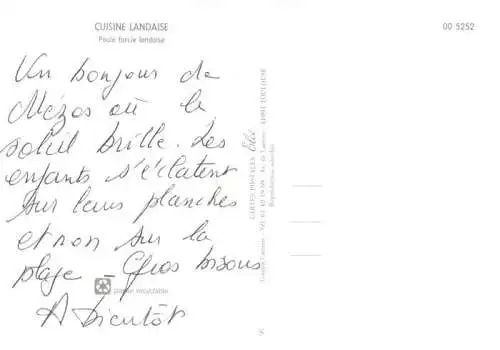 CUISINE LANDAISE
Poule farcie landaise
00 5252
Un bonjour de
Mézos où le
soleil brille. Les
enfants s'éclatent
sur leurs planches
et non sur la
plage - Gros bisous
A Bientôt
papier recyclable
CARTES POSTALES Elcé
Reproduction interdite